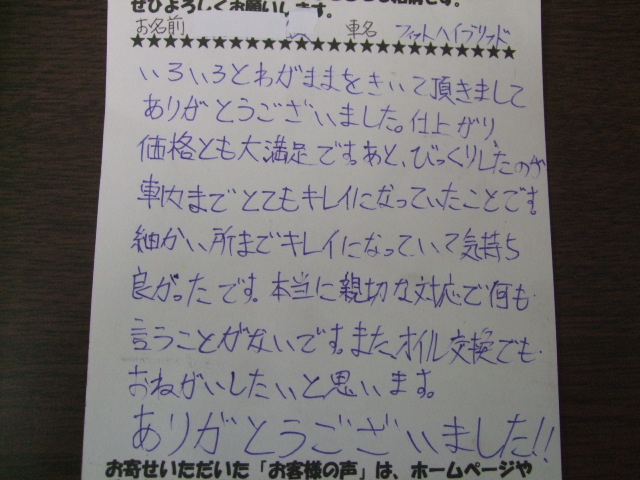 ぜひよろしくお願いします。
お名前 車名 フィットハイブリッド
★★★★★★★★★★★★★★★★★★★★★★★★★★★★★★
いろいろとわがままをきいて頂きまして
ありがとうございました。仕上がり、
価格とも大満足です。あと、びっくりしたのが
車内までとてもキレイになっていたことです。
細かい所までキレイになっていて気持ち
良かったです。本当に親切な対応で何も
言うことがないです。また、オイル交換でも
おねがいしたいと思います。
ありがとうございました!!
お寄せいただいた「お客様の声」は、ホームページや